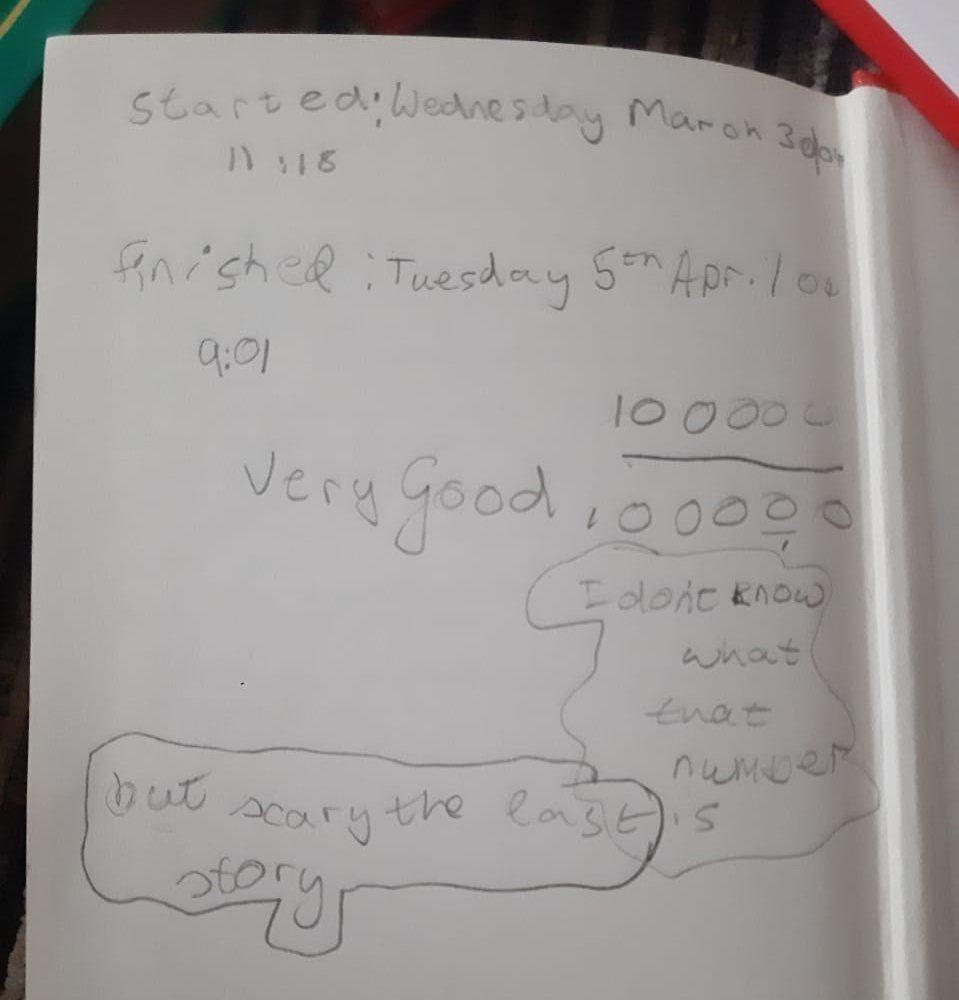 started: Wednesday March 30
11:18
finished: Tuesday 5th April
9:01
100000
Very Good 100000
I don't know
what
that
number
is
but scary the last
story